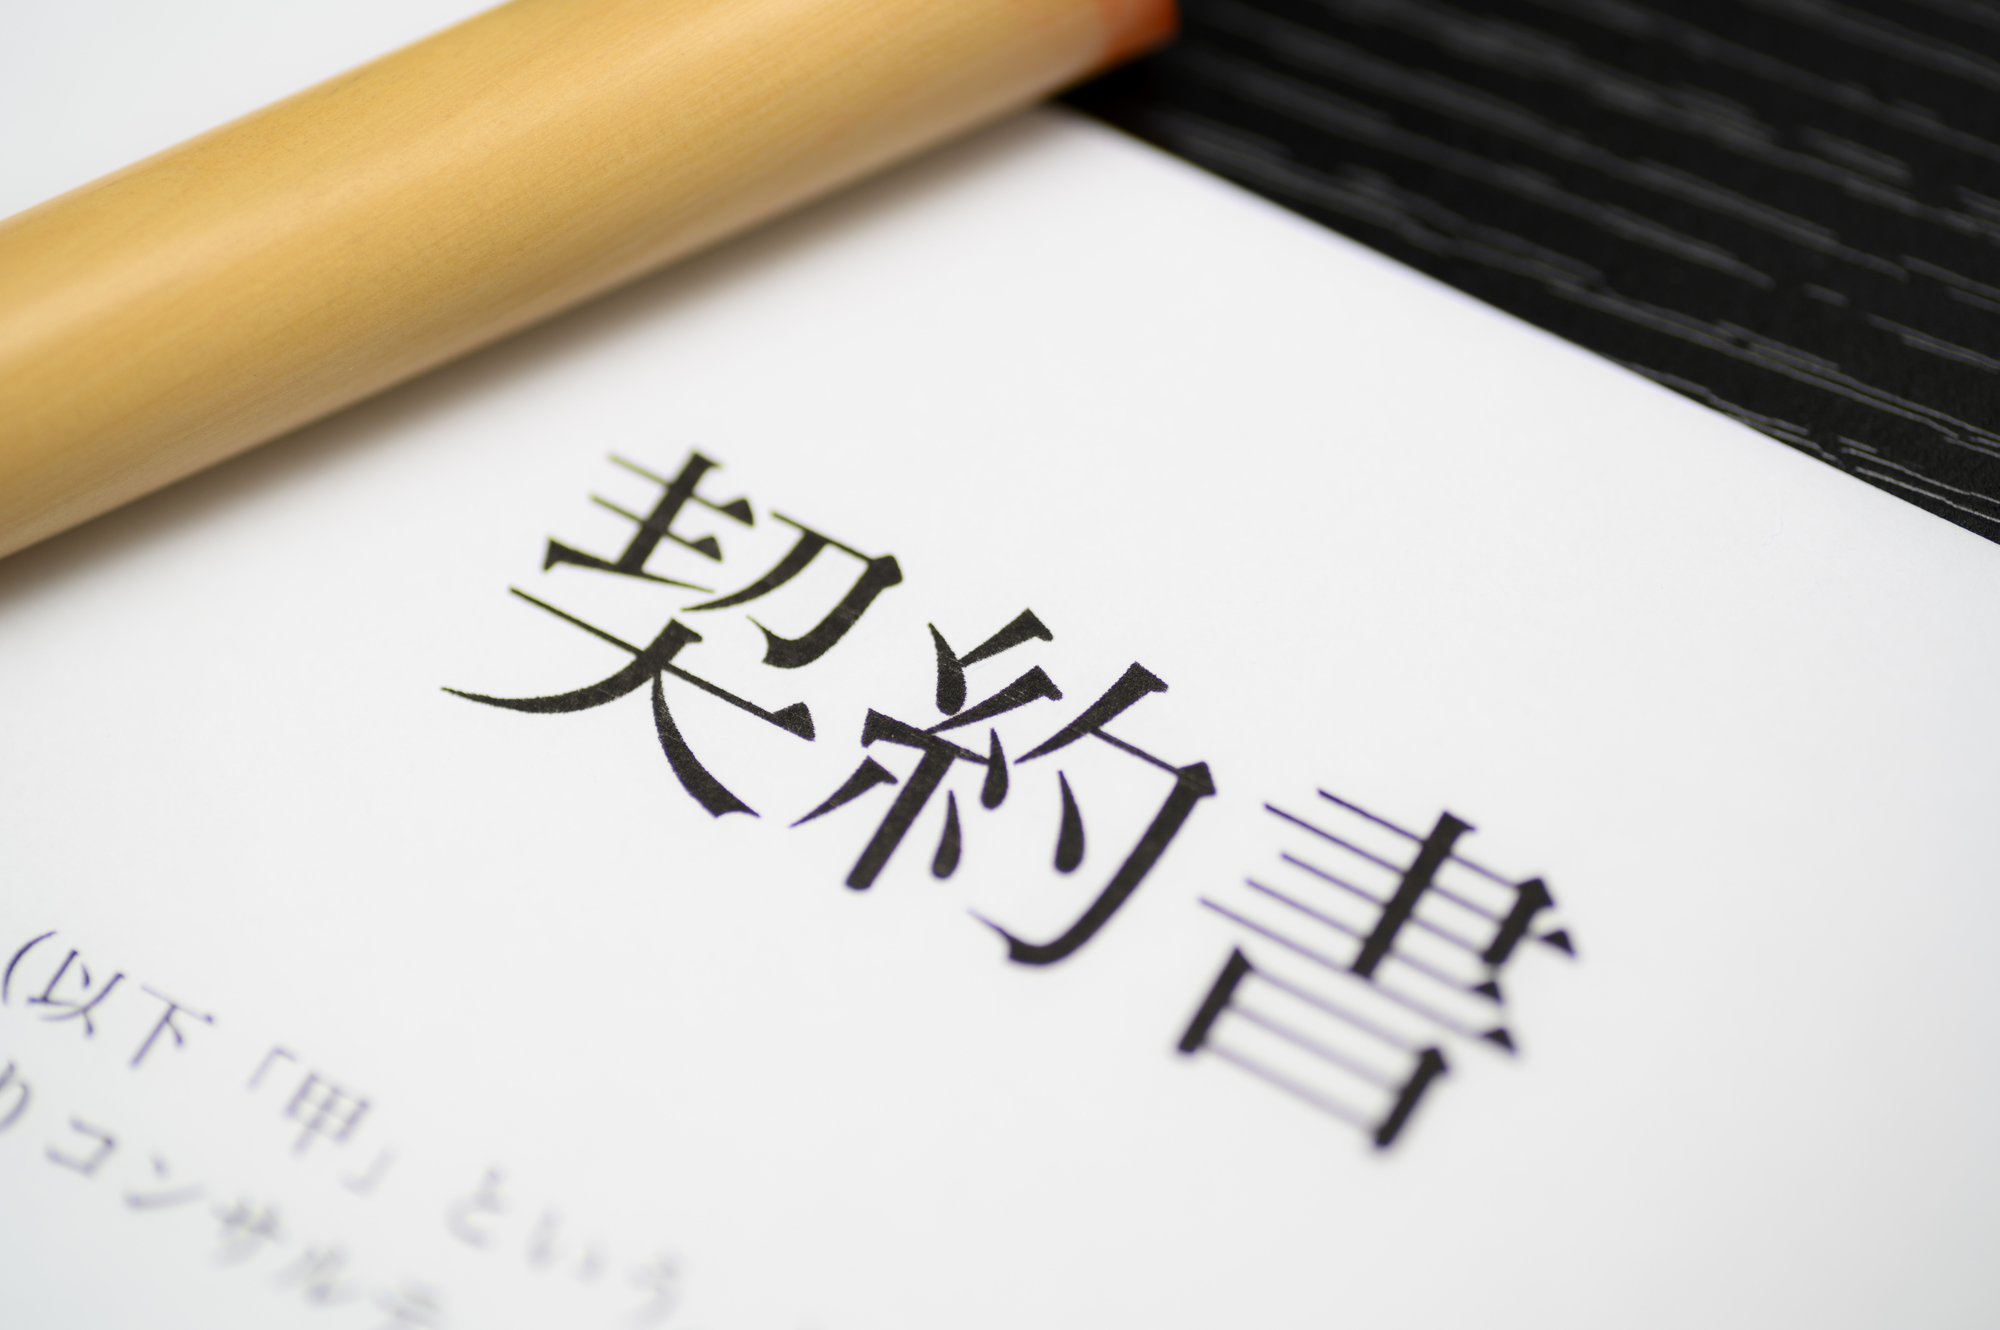 契約書
(以下「甲」という
りコンサルテ